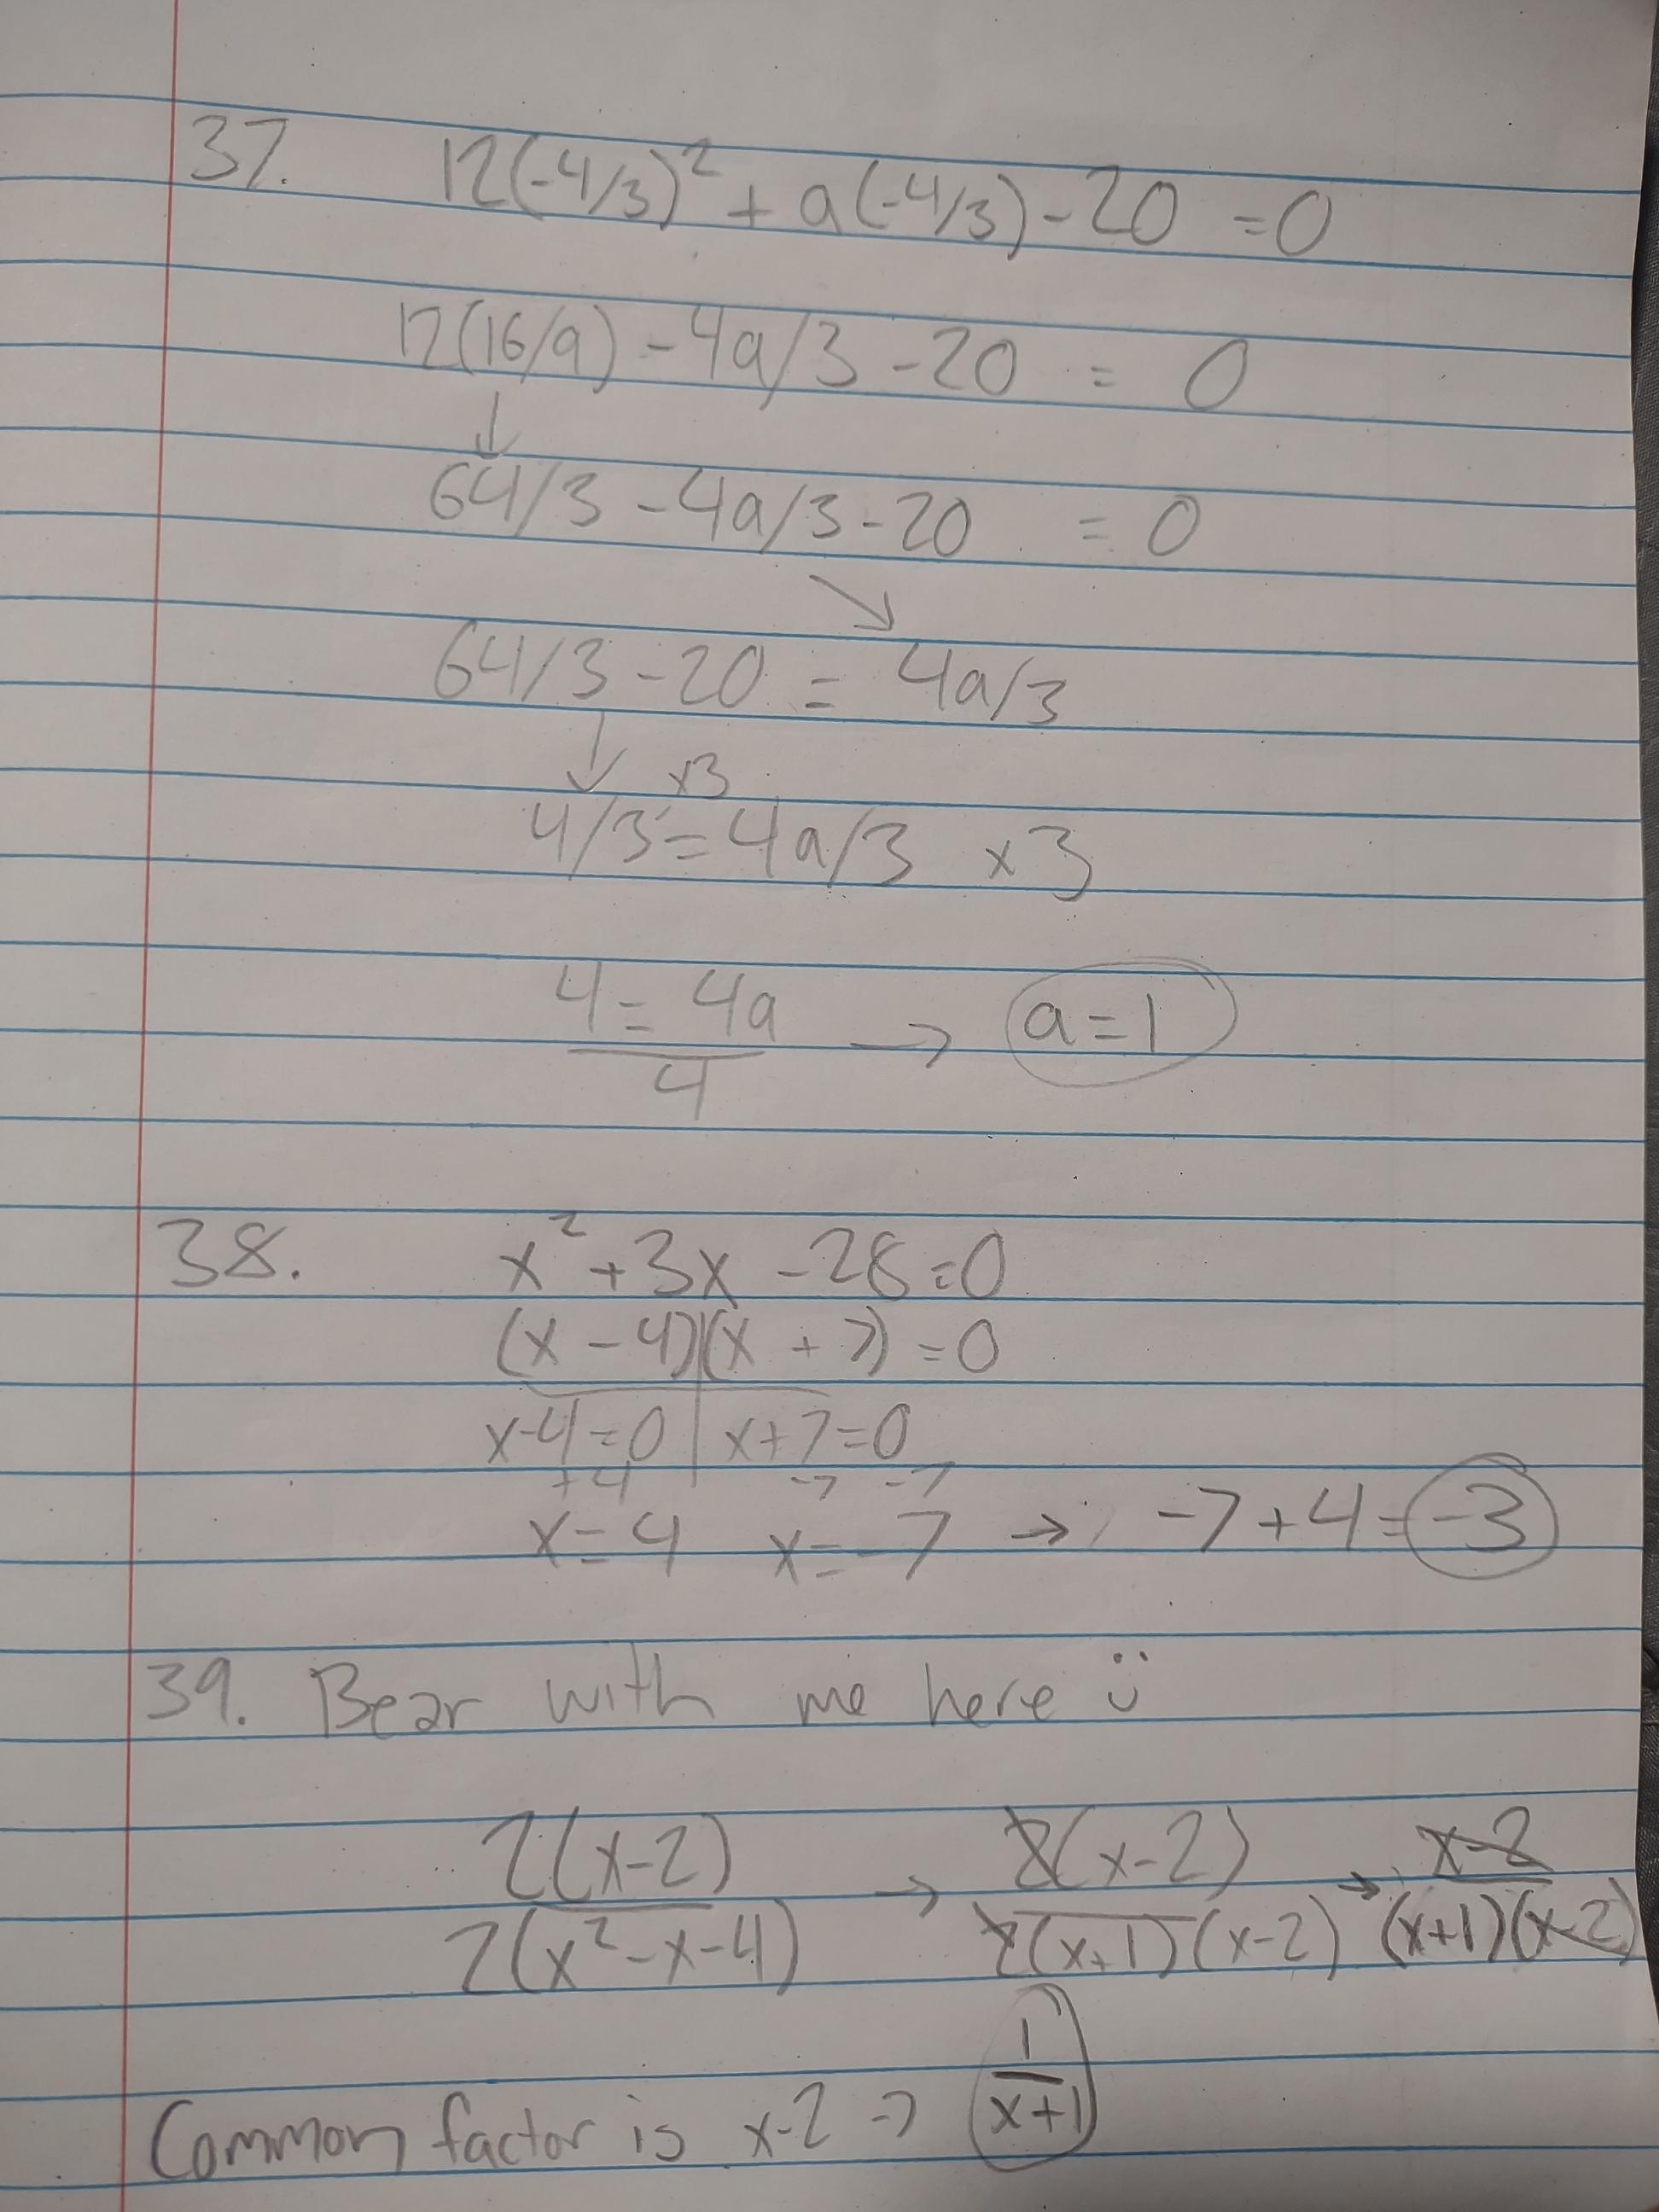 37. 12(-4/3)² + a(-4/3) - 20 = 0
12(16/9) - 4a/3 - 20 = 0
↓
64/3 - 4a/3 - 20 = 0
↘
64/3 - 20 = 4a/3
↓ x3
4/3 = 4a/3 x3
4 = 4a → a = 1
4
38. x² + 3x - 28 = 0
(x - 4)(x + 7) = 0
x-4=0 | x+7=0
+4 -7 -7
x = 4 x = -7 → -7 + 4 = -3
39. Bear with me here ü
2(x-2) → 2(x-2) → x-2
2(x²-x-4) 2(x+1)(x-2) (x+1)(x-2)
1
Common factor is x-2 → x+1